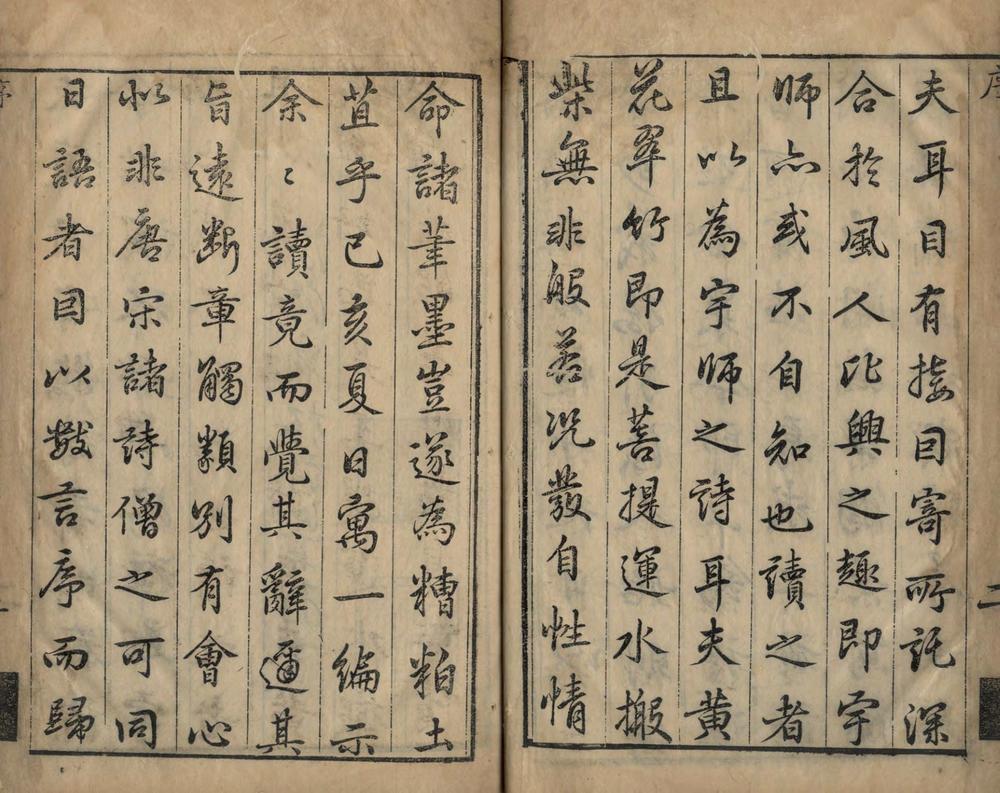 夫耳目有接因寄所託深
合於風人比興之趣即宇
師亦或不自知也讀之者
且以為宇師之詩耳夫黃
花翠竹即是菩提運水搬
柴無非般若況發自性情
命諸筆墨豈遂為糟粕土
苴乎己亥夏日寓一編示
余〻讀竟而覺其辭邇其
旨遠斷章觸類別有會心
似非唐宋諸詩僧之可同
日語者因以數言序而歸
序
二